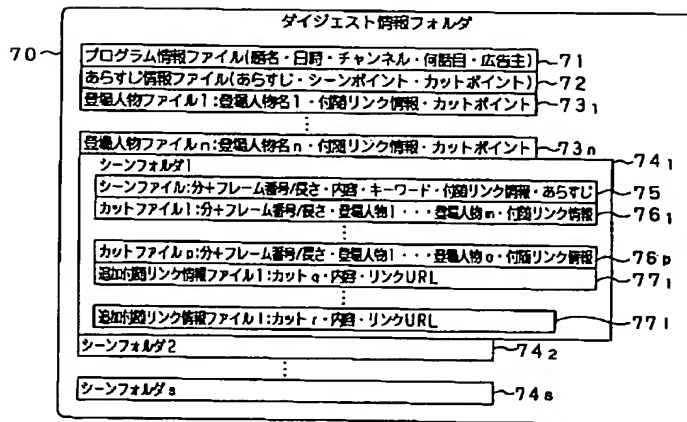 ダイジェスト情報フォルダ
70
プログラム情報ファイル(題名・日時・チャンネル・何話目・広告主) 71
あらすじ情報ファイル(あらすじ・シーンポイント・カットポイント) 72
登場人物ファイル1:登場人物名1・付随リンク情報・カットポイント 73₁
登場人物ファイルn:登場人物名n・付随リンク情報・カットポイント 73n
シーンフォルダ1 74₁
シーンファイル:分+フレーム番号/長さ・内容・キーワード・付随リンク情報・あらすじ 75
カットファイル1:分+フレーム番号/長さ・登場人物1・・・登場人物m・付随リンク情報 76₁
カットファイルp:分+フレーム番号/長さ・登場人物1・・・登場人物o・付随リンク情報 76p
追加付随リンク情報ファイル1:カットq・内容・リンクURL 77₁
追加付随リンク情報ファイルl:カットr・内容・リンクURL 77l
シーンフォルダ2 74₂
シーンフォルダs 74s